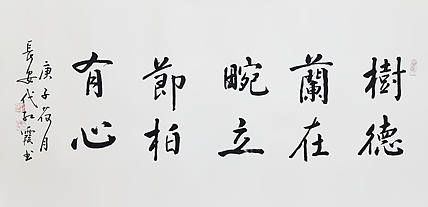 樹德
蘭在
畹立
節柏
有心
庚子荷月
長安代红霞书